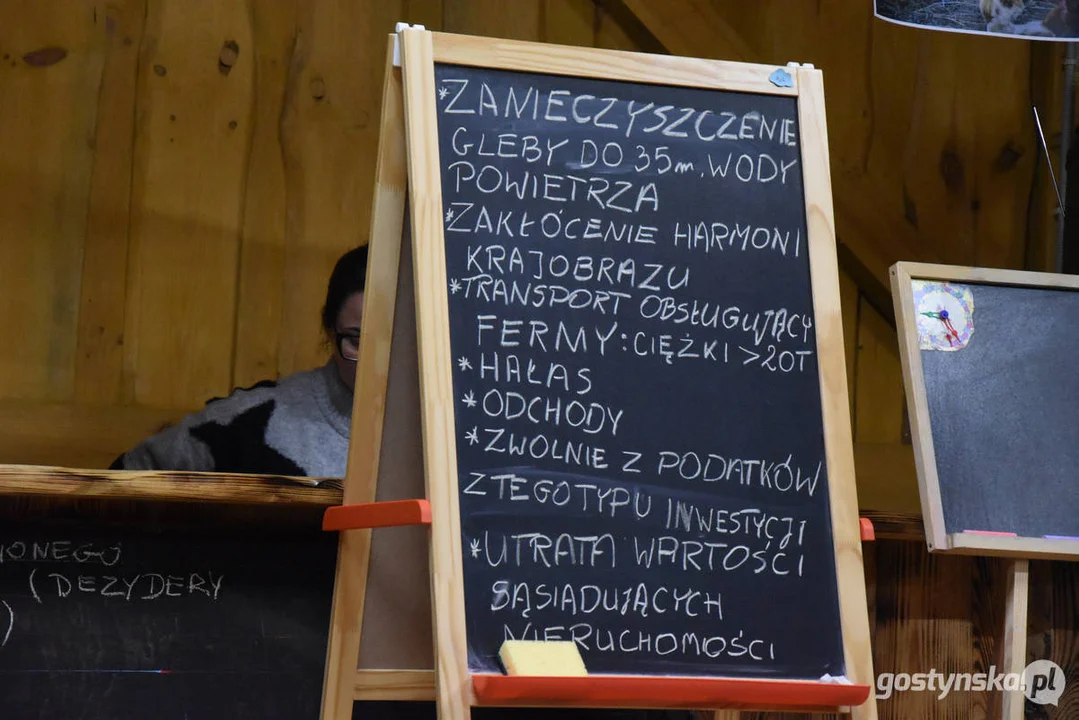 *ZANIECZYSZCZENIE
GLEBY DO 35m, WODY
POWIETRZA
*ZAKŁÓCENIE HARMONI
KRAJOBRAZU
*TRANSPORT OBSŁUGUJĄCY
FERMY: CIĘŻKI >20T
*HAŁAS
*ODCHODY
*ZWOLNIE Z PODATKÓW
Z TEGO TYPU INWESTYCJI
*UTRATA WARTOŚCI
SĄSIADUJĄCYCH
NIERUCHOMOŚCI
IONEGO
(DEZYDERY
)
gostynska.pl